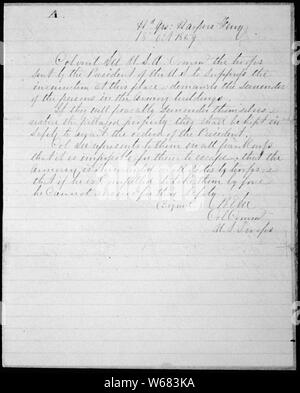 A
Hd Qrs: Harpers Ferry
18 Oct 1859
Colonel Lee U.S.A. Com'g the troops
sent by the President of the U.S. to suppress the
insurrection at this place demands the surrender
of the persons in the armory buildings.
If they will peaceably surrender themselves &
restore the pillaged property, they shall be kept in
safety to await the orders of the President.
Col Lee represents to them in all frankness
that it is impossible for them to escape - that the
armory is surrounded on all sides by troops &
that if he is compelled to take them by force
he cannot answer for their safety
(Signed) R E Lee
Col Comm
U.S. Troops
alamy
Image ID: W683KA
www.alamy.com